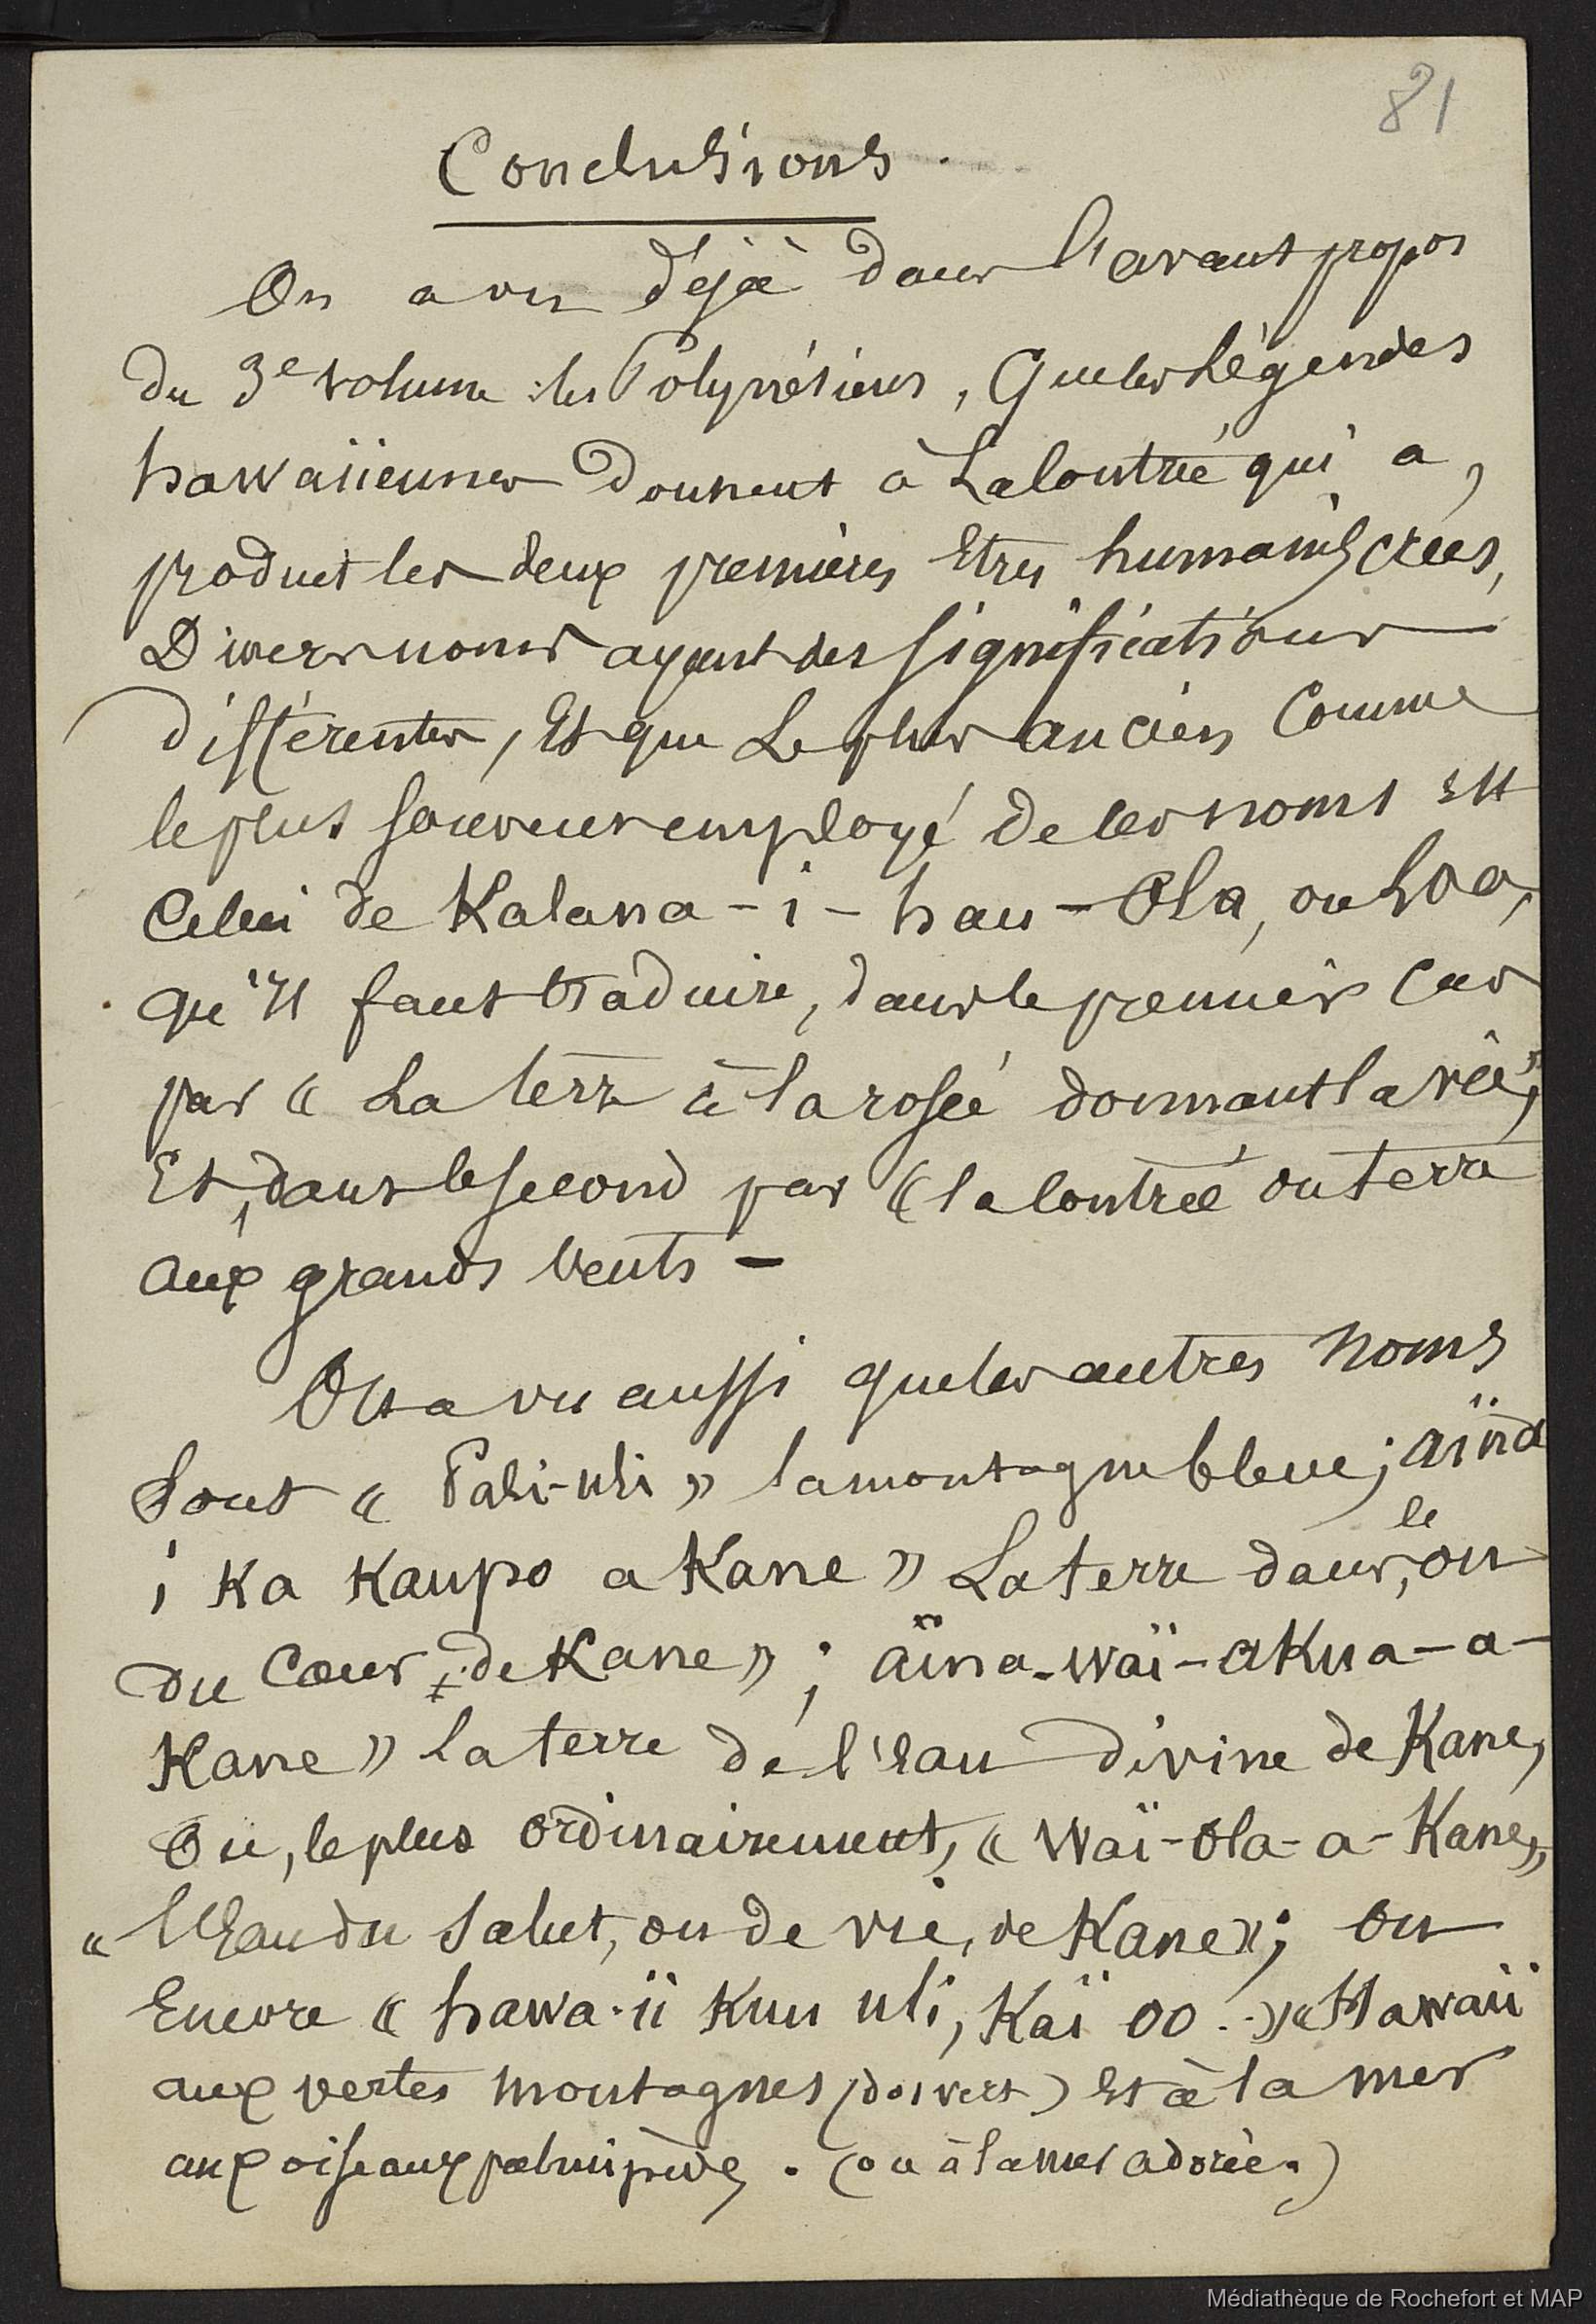 81
Conclusions.
On a vu déjà dans l'avant propos
du 3e volume : les Polynésiens, que les légendes
hawaiiennes donnent à la contrée qui a,
produit les deux premiers Etres humains créés,
Divers noms ayant des significations
différentes, Et que Le plus ancien Comme
le plus souvent employé de ces noms est
Celui de Kalana-i-hau-Ola, ou Loa,
qu'il faut traduire, dans le premier Cas
par « La terre à la rosée donnant la vie »,
Et, dans le second par « la contrée ou terre
aux grands vents -
On a vu aussi que les autres noms
Sont « Pali-uli » la montagne bleue ; aïna
i Ka Kaupo a Kane » La terre dans, ou
le
du Cœur de Kane » ; aïna-waï-akua-a-
Kane » la terre de l'eau divine de Kane,
Ou, le plus ordinairement, « Waï-ola-a-Kane »,
« l'Eau du Salut, ou de vie, de Kane » ; ou
Encore « hawa-ii Kuu uli, Kaï oo .. » « Hawaii
aux vertes montagnes (dos vert) Et à la mer
aux oiseaux palmipèdes. (ou à la mer adorée.)
Médiathèque de Rochefort et MAP